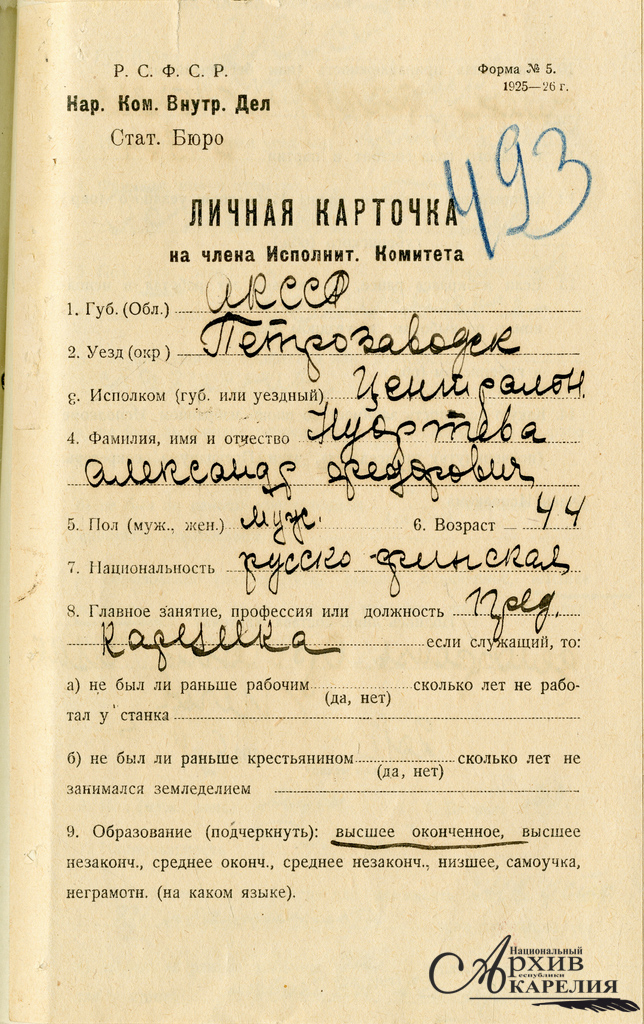 Р. С. Ф. С. Р.
Форма № 5.
1925—26 г.
Нар. Ком. Внутр. Дел
Стат. Бюро
493
ЛИЧНАЯ КАРТОЧКА
на члена Исполнит. Комитета
1. Губ. (Обл.) АКССР
2. Уезд (окр) Петрозаводск
3. Исполком (губ. или уездный) Централн.
4. Фамилия, имя и отчество Нуортева
Александр Федорович
5. Пол (муж., жен.) муж. 6. Возраст 44
7. Национальность русско-финская
8. Главное занятие, профессия или должность Пред.
КарЦИКа если служащий, то:
а) не был ли раньше рабочим сколько лет не рабо-
(да, нет)
тал у станка
б) не был ли раньше крестьянином сколько лет не
(да, нет)
занимался земледелием
9. Образование (подчеркнуть): высшее оконченное, высшее
незаконч., среднее оконч., среднее незаконч., низшее, самоучка,
неграмотн. (на каком языке).
Национальный
Архив
республики
КАРЕЛИЯ